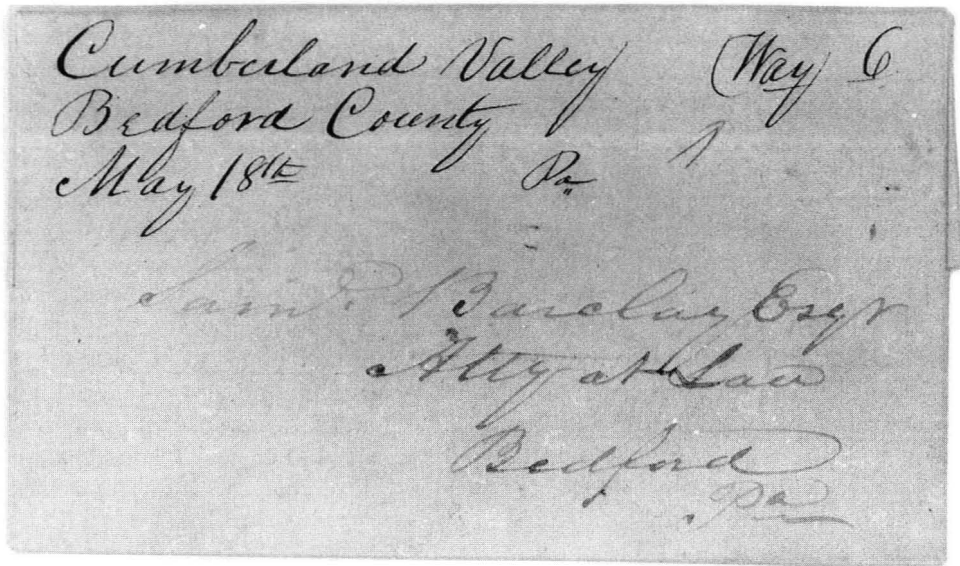 Cumberland Valley (Way) 6
Bedford County
May 18th Pa
Saml. Barclay Esqr
Atty at Law
Bedford
Pa